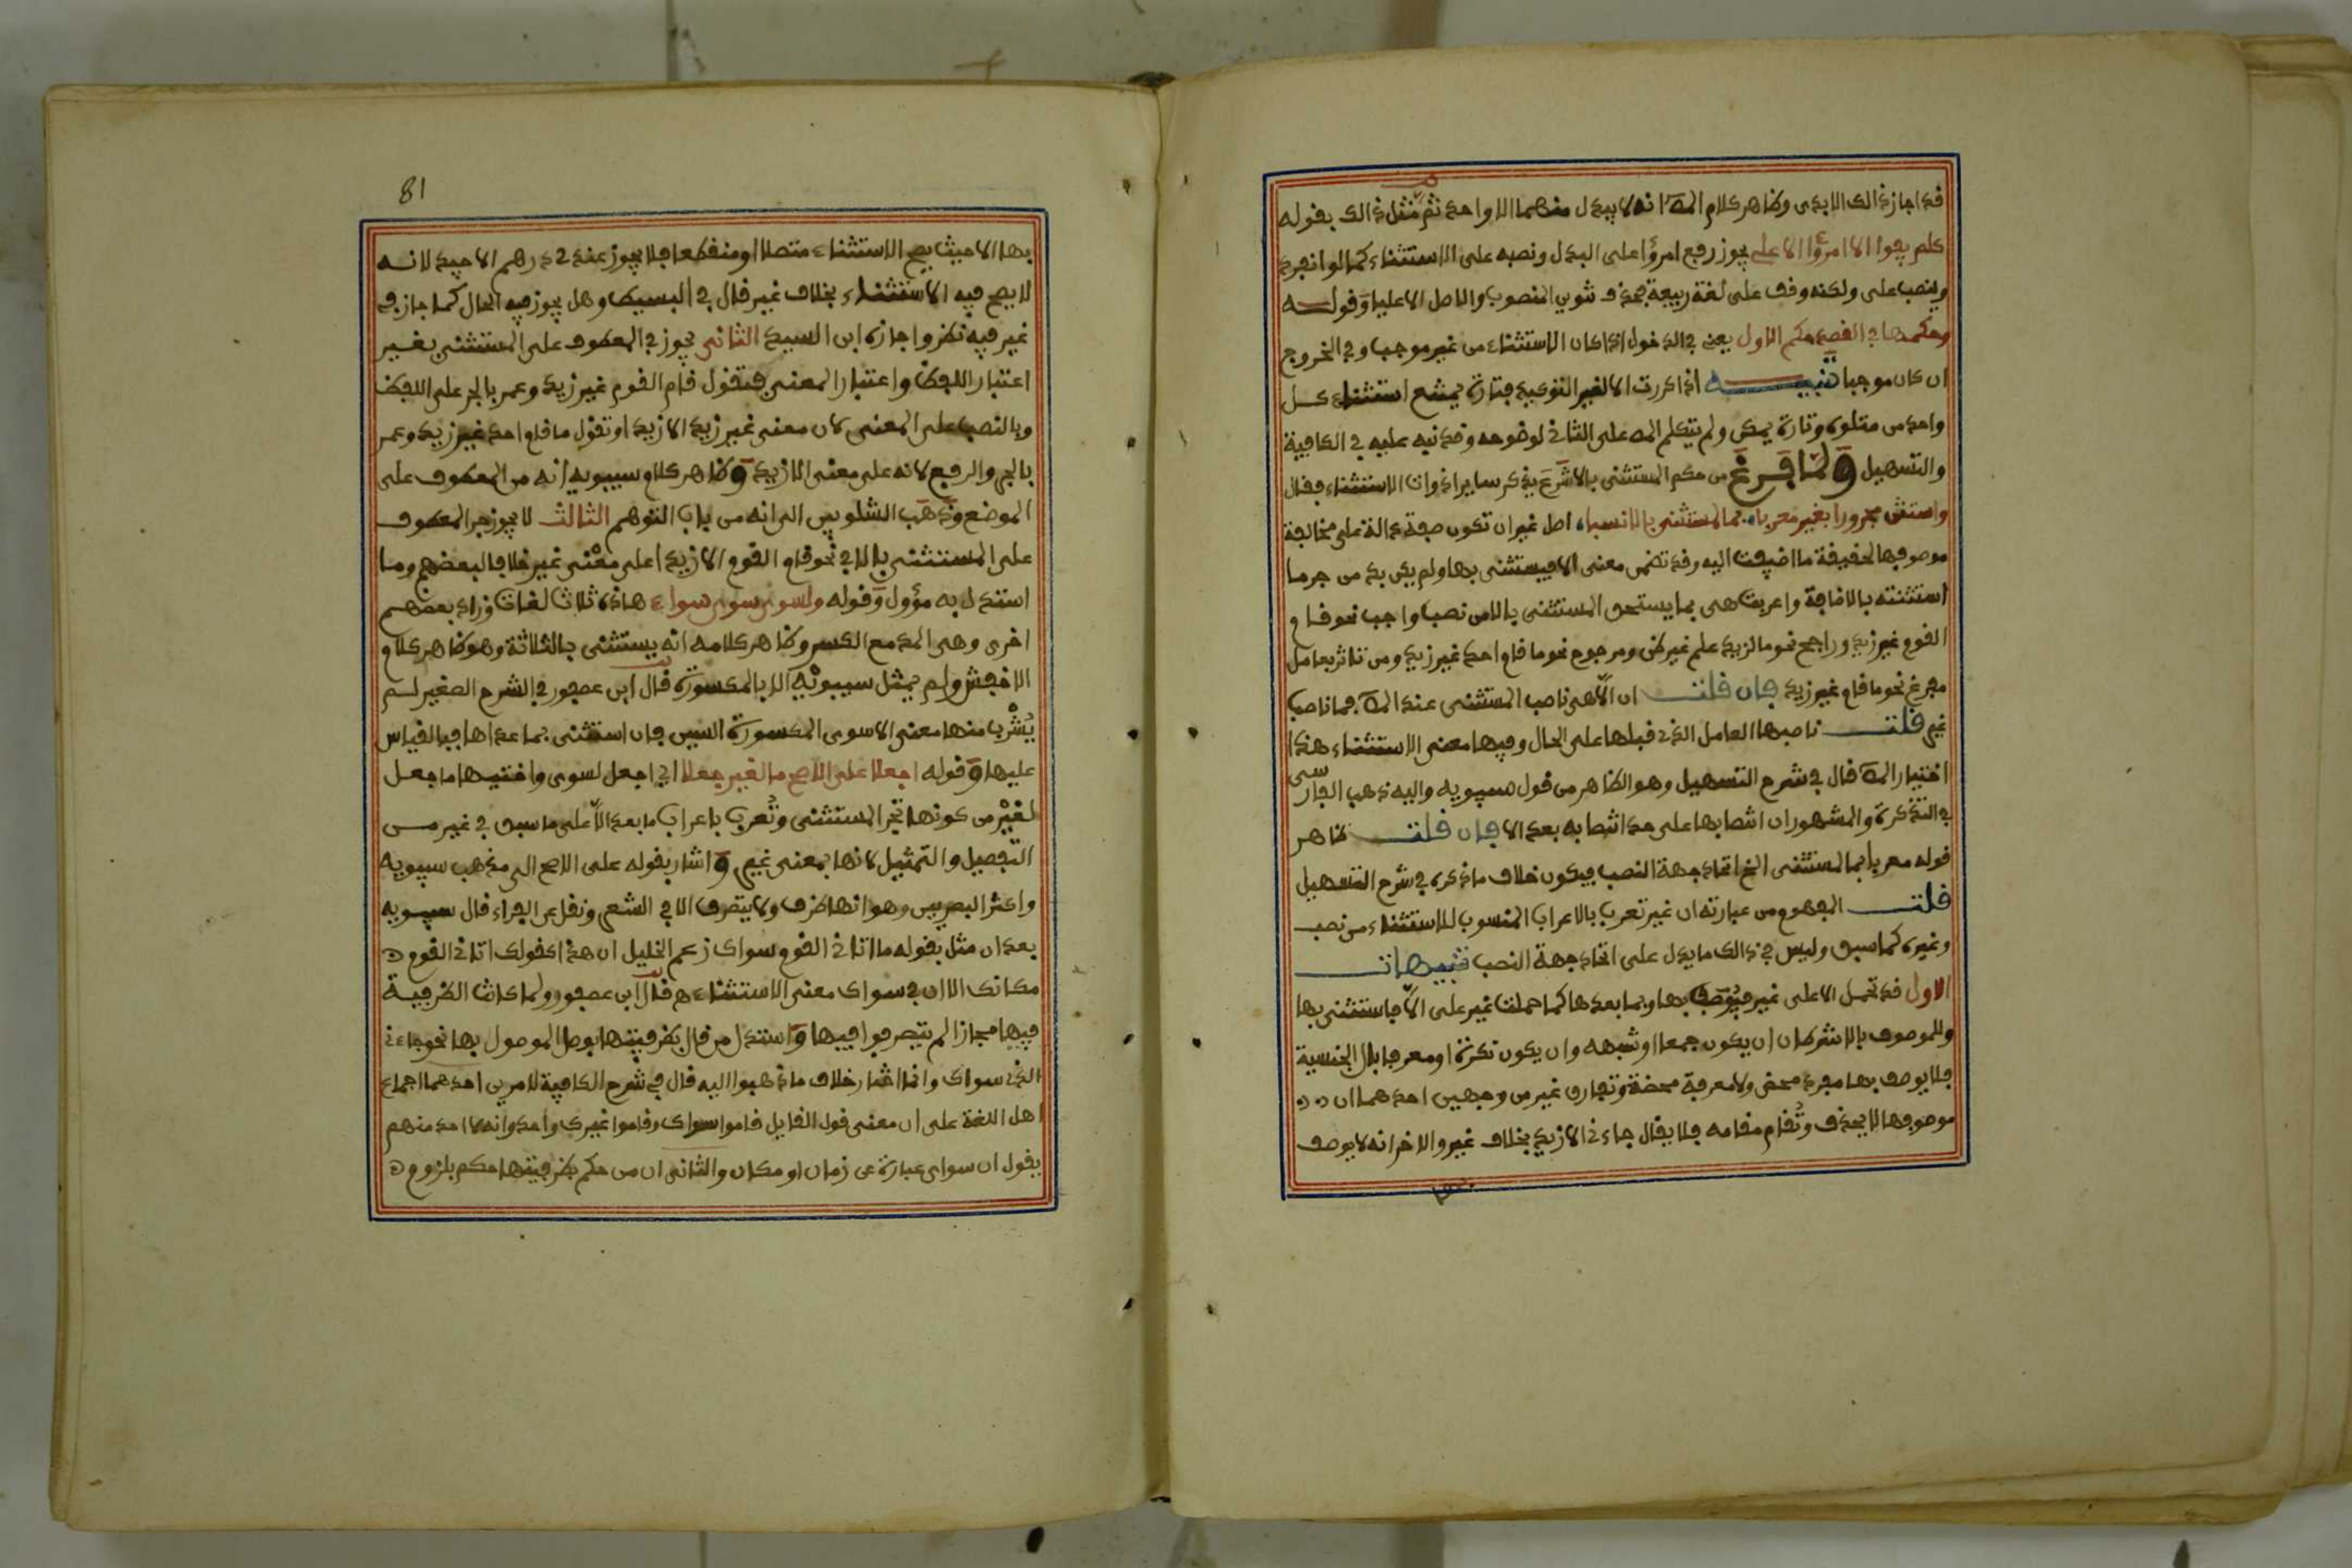 قد اجاز ذالك الابدى وظاهر كلام المص انه لا يبدل منهما الا واحد ثم مثل ذالك بقوله
كلم يفوا الا امرؤا الا على يجوز رفع امرؤا على البدل ونصبه على الاستثناء كما لو انفرد
وينصب على ولكنه وقف على لغة ربيعة بحذف تنوين المنصوب والاصل الا عليا وقوله
وحكمها في القصد حكم الاول يعنى في الدخول اذا كان الاستثناء من غير موجب وفي الخروج
ان كان موجبا تنبيه اذا كررت الا لغير التوكيد فتارة يمتنع استثناء كل
واحد من متلوه وتارة يمكن ولم يتكلم المص على الثاني لوضوحه وقد نبه عليه في الكافية
والتسهيل ولما فرغ من حكم المستثنى بالا شرع يذكر ساير ادوات الاستثناء فقال
واستثن مجرورا بغير معربا بما لمستثنى بالا نسبا اصل غير ان تكون صفة دالة على مخالفة
موصوفها لحقيقة ما اضيفت اليه وقد تضمن معنى الا فيستثنى بها ولم يكن بد من جر ما
استثنته بالاضافة واعربت هى بما يستحق المستثنى بالا من نصب واجب نحو قام
القوم غير زيد وراجح نحو ما لزيد علم غير ظن ومرجوح نحو ما قام احد غير زيد ومن تاثر بعامل
مفرغ نحو ما قام غير زيد فان قلت ان الا هى ناصب المستثنى عند المص فما ناصب
غير قلت ناصبها العامل الذى قبلها على الحال وفيها معنى الاستثناء هذا
اختيار المص قال في شرح التسهيل وهو الظاهر من قول سيبويه واليه ذهب الفارسى
في التذكرة والمشهور ان انتصابها على حد انتصابه بعد الا فان قلت ظاهر
قوله معربا بما لمستثنى الخ اتحاد جهة النصب فيكون خلاف ما ذكره في شرح التسهيل
قلت المفهوم من عبارته ان غير تعرب بالاعراب المنسوب للاستثناء من نصب
وغيره كما سبق وليس في ذالك ما يدل على اتحاد جهة النصب تنبيهات
الاول قد تحمل الا على غير فيوصف بها وبما بعدها كما حملت غير على الا فاستثنى بها
وللموصوف بالا شرطان ان يكون جمعا او شبهه وان يكون نكرة او معرفا بال الجنسية
فلا يوصف بها مفرد محض ولا معرفة محضة وتفارق غير من وجهين احدهما ان
موصوفها لا يحذف وتقام مقامه فلا يقال جاءنى الا زيد بخلاف غير والاخر انه لا يوصف
81
بها الا حيث يصح الاستثناء متصلا او منقطعا فلا يجوز عندى درهم الا جيد لانه
لا يصح فيه الاستثناء بخلاف غير قال في البسيط وهل يجوز فيه الحال كما جاز في
غير فيه نظر واجازه ابن السيد الثانى يجوز في المعطوف على المستثنى بغير
اعتبار اللفظ واعتبار المعنى فتقول قام القوم غير زيد وعمر بالجر على اللفظ
وبالنصب على المعنى لان معنى غير زيد الا زيد او تقول ما قام احد غير زيد وعمر
بالجر والرفع لانه على معنى الا زيد وظاهر كلام سيبويه انه من المعطوف على
الموضع وذهب الشلوبين الى انه من باب التوهم الثالث لا يجوز جر المعطوف
على المستثنى بالا في نحو قام القوم الا زيدا على معنى غير خلافا لبعضهم وما
استدل به مؤول وقوله ولسوى سوى سواء هاذه ثلاث لغات وزاد بعضهم
اخرى وهى المد مع الكسر وظاهر كلامه انه يستثنى بالثلاثة وهو ظاهر كلام
الاخفش ولم يمثل سيبويه الا بالمكسورة قال ابن عصفور في الشرح الصغير لم
يشرب منها معنى الا سوى المكسورة السين فان استثنى بما عداها فبالقياس
عليها وقوله اجعلا على الاصح ما لغير جعلا اي اجعل لسوى واختيها ما جعل
لغير من كونها تجر المستثنى وتعرب باعراب ما بعد الا على ما سبق في غير من
التفصيل والتمثيل لانها بمعنى غير واشار بقوله على الاصح الى مذهب سيبويه
واكثر البصريين وهو انها ظرف ولا يتصرف الا في الشعر ونقل عن الفراء قال سيبويه
بعد ان مثل بقوله ما اتانى القوم سواك زعم الخليل ان هذا كقولك اتانى القوم
مكانك الا ان في سواك معنى الاستثناء ه قال ابن عصفور ولما كانت الظرفية
فيها مجازا لم يتصرفوا فيها واستدل من قال بظرفيتها بوصل الموصول بها نحو جاءنى
الذى سواك وانما اختار خلاف ما ذهبوا اليه قال في شرح الكافية لامرين احدهما اجماع
اهل اللغة على ان معنى قول القايل قاموا سواك وقاموا غيرك واحد وانه لا احد منهم
يقول ان سواى عبارة عن زمان او مكان والثانى ان من حكم بظرفيتها حكم بلزوم